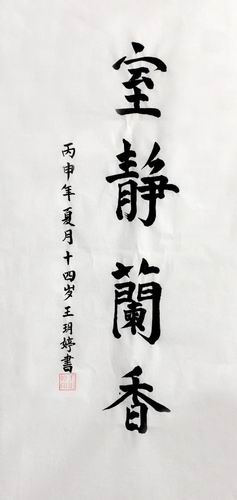 室靜蘭香
丙申年夏月十四岁王玥婷書